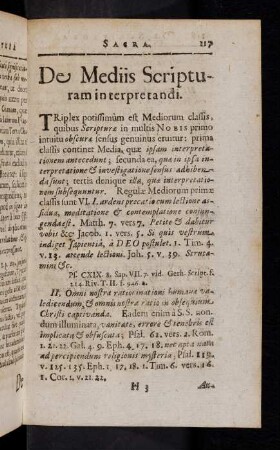 SACRA. 117
De Mediis Scriptu-
ram interpretandi.
TRiplex potissimùm est Mediorum classis,
quibus Scripturæ in multis NOBIS primo
intuitu obscuræ sensus genuinus eruitur: prima
classis continet Media, quæ ipsam interpreta-
tionem antecedunt; secunda ea, quæ in ipsa in-
terpretatione & investigatione sensus adhiben-
da sunt; tertia denique illa, quæ interpretatio-
nem subsequuntur. Regulæ Mediorum primæ
classis sunt VI. I. ardens precatio cum lectione as-
sidua, meditatione & contemplatione conjun-
genda est. Matth. 7. vers. 7. Petite & dabitur
vobis &c. Jacob. 1. vers. 5. Si quis vestrum
indiget sapientiâ, à DEO postulet. 1. Tim. 4.
v. 13. attende lectioni. Joh. 5. v. 39. Scruta-
mini &c.
Ps. CXIX. 8. Sap. VII. 7. vid. Gerh. Script. f.
114. Riv. T. II. f. 946. a.
II. Omni nostræ ratiocinationi humanæ va-
ledicendum, & omnis nostra ratio in obsequium
Christi captivanda. Eadem enim à S.S. non-
dum illuminata, vanitate, errore & tenebris est
implicata & obfuscata; Psal. 62. vers. 2. Rom.
1. 21. 22. Gal. 4. 9. Eph. 4. 17. 18. nec apta
ad percipiendum religionis mysteria; Psal. 119.
v. 125. 135. Eph. 1. 17. 18. 1. Tim. 6. vers. 16
1. Cor. 1. v. 21. 22.
H 3